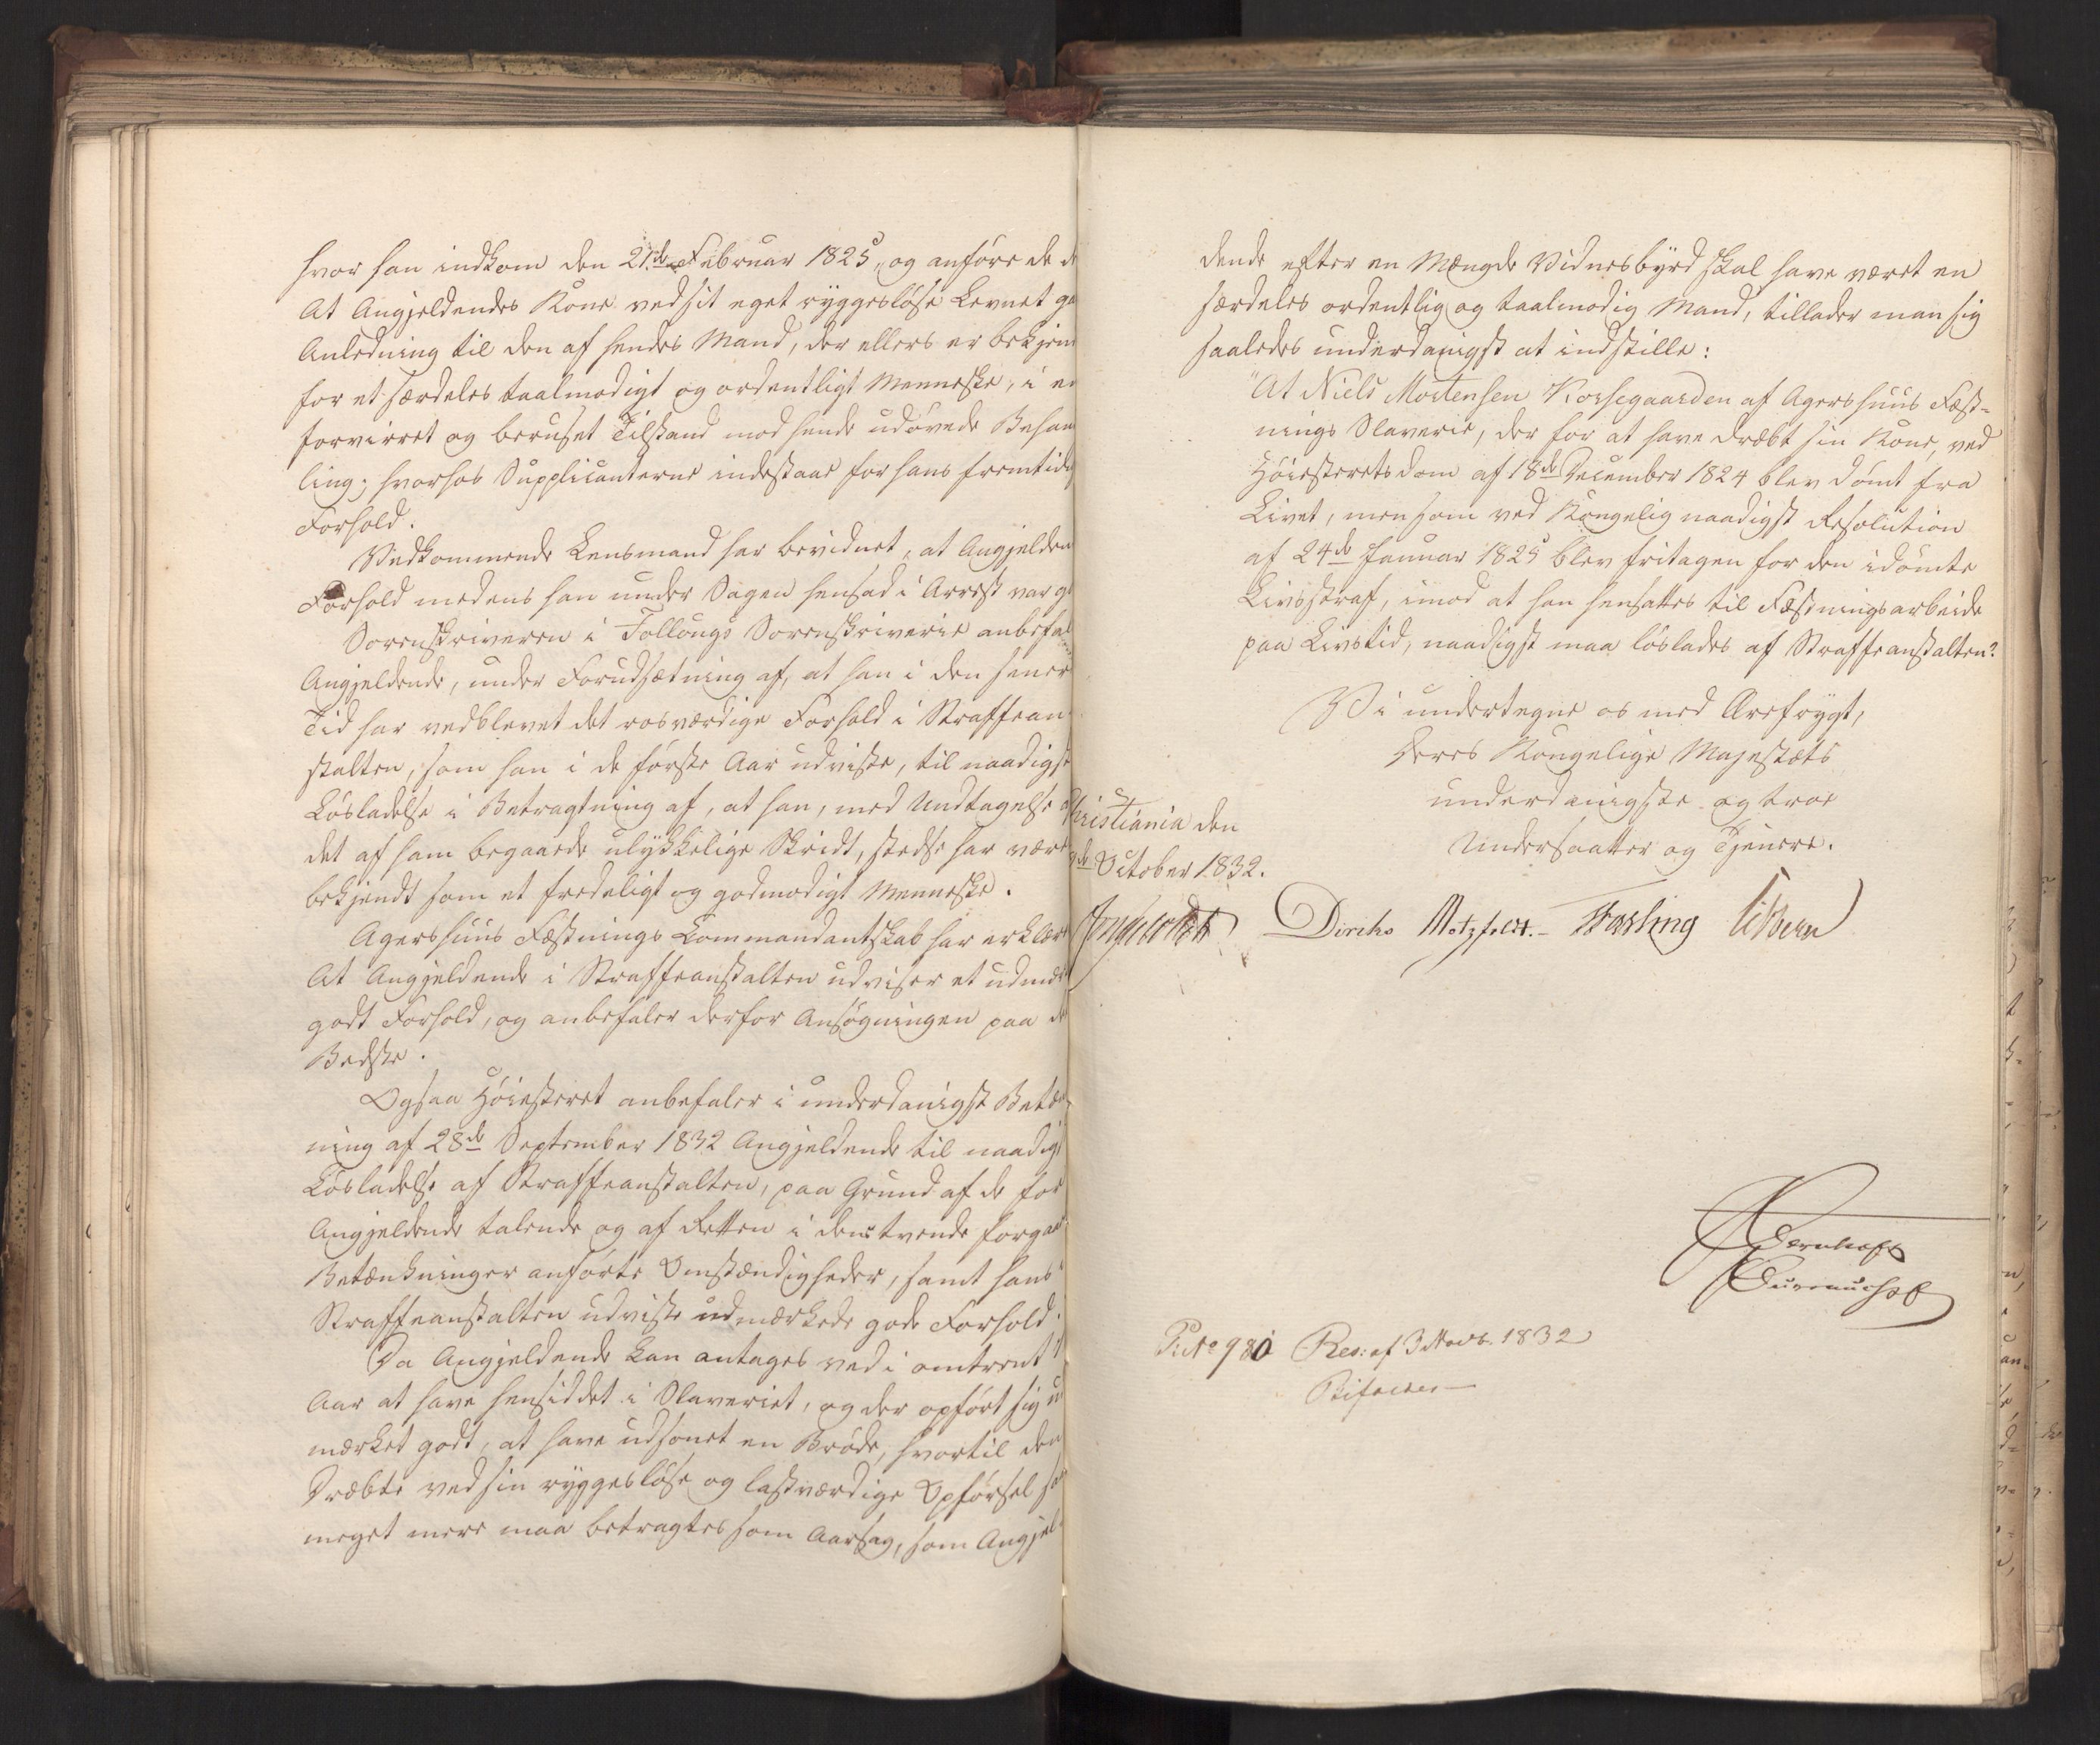 hvor han indkom den 21de Februar 1825, og anføre de
At Angjeldendes Kone ved sit eget ryggesløse Levnet
Anledning til den af hendes Mand, der ellers er bekjen
for et særdeles taalmodigt og ordentligt Menneske, i en
forvirret og beruset Tilstand mod hende udøvede Behan
ling; hvorhos Supplicanterne indestaae for hans fremtidig
Forhold.
Vedkommende Lensmand har bevidnet, at Angjelden
Forhold medens han under Sagen hensad i Arrest var
Sorenskriveren i Follougs Sorenskriverie anbefal
Angjeldende, under Forudsætning af, at han i den sener
Tid har vedblevet det rosværdige Forhold i Straffean
stalten, som han i de første Aar udviste, til naadigst
Løsladelse i Betragtning af, at han, med Undtagelse
det af ham begaaede ulykkelige Skridt, stedse har være
bekjendt som et fredeligt og godmodigt Menneske.
Agershuus Fæstnings Commandantskab har erklær
At Angjeldende i Straffeanstalten udviser et udmær
godt Forhold, og anbefaler derfor Ansøgningen paa de
Bedste.
Ogsaa Høiesteret anbefaler i underdanigst Betæn
ning af 28de September 1832 Angjeldende til naadigs
Løsladelse af Straffeanstalten, paa Grund af de for
Angjeldende talende og af Retten i dens tvende forgaa
Betænkninger anførte Omstændigheder, samt hans
Straffeanstalten udviste udmærkede gode Forhold.
Da Angjeldende kan antages ved i omtrent
Aar at have hensiddet i Slaveriet, og der opført sig ud
mærket godt, at have udsonet en Brøde, hvortil den
Dræbte ved sin ryggesløse og lastværdige Opførsel saa
meget mere maa betragtes som Aarsag, som Angjel
dende efter en Mængde Vidnesbyrd skal have været en
særdeles ordentlig og taalmodig Mand, tillader man sig
saaledes underdanigst at indstille:
"At Niels Mortensen Korsegaarden af Agershuus Fæst-
nings Slaverie, der for at have dræbt sin Kone, ved
Høiesteretsdom af 18de December 1824 blev dømt fra
Livet, men som ved Kongelig naadigst Resolution
af 24de Januar 1825 blev fritagen for den idømte
Livsstraf, imod at han hensattes til Fæstningsarbeide
paa Livstid, naadigst maa løslades af Straffeanstalten?
Vi undertegne os med Ærefrygt,
Deres Kongelige Majestæts
underdanigste og troe
Undersaatter og Tjenere.
Christiania den
de October 1832.
Diriks Motzfeldt. Fasting
P: No 980 Res: af 3 Novb. 1832
Bifaldes